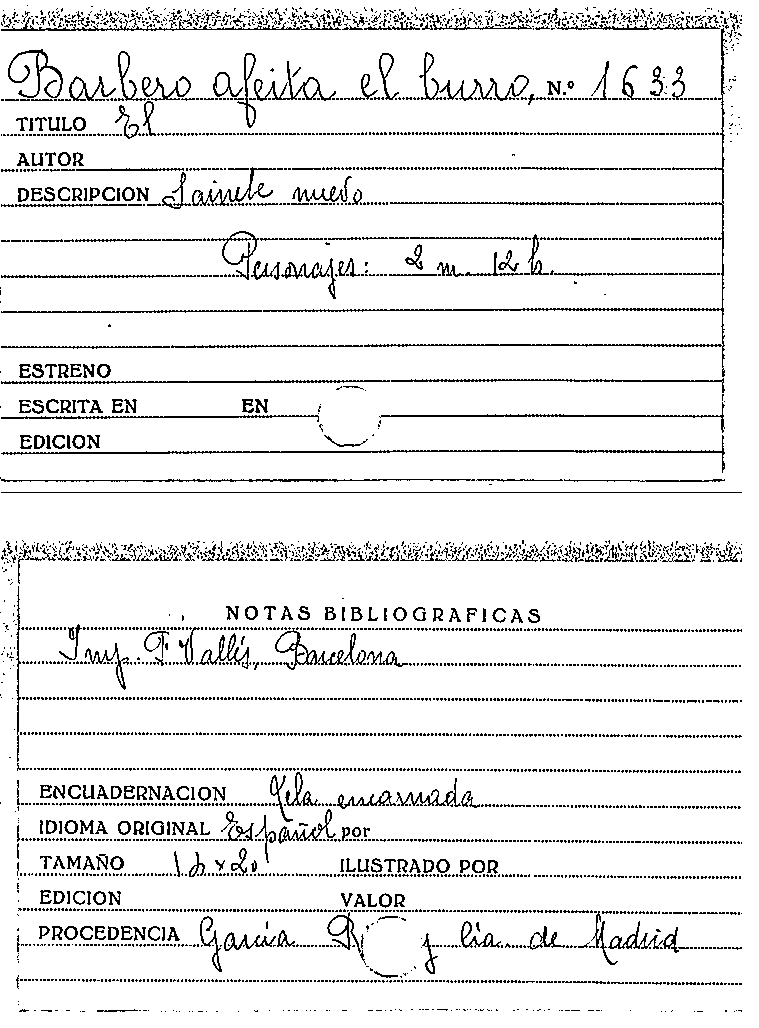 Barbero afeita el burro, N.º 1633
TITULO El
AUTOR
DESCRIPCION Sainete nuevo
Personajes: 2 m. 12 h.
ESTRENO
ESCRITA EN EN
EDICION
NOTAS BIBLIOGRAFICAS
Imp. F. Vallés, Barcelona
ENCUADERNACION Tela encarnada
IDIOMA ORIGINAL Español por
TAMAÑO ILUSTRADO POR
EDICION VALOR
PROCEDENCIA García y Cía. de Madrid